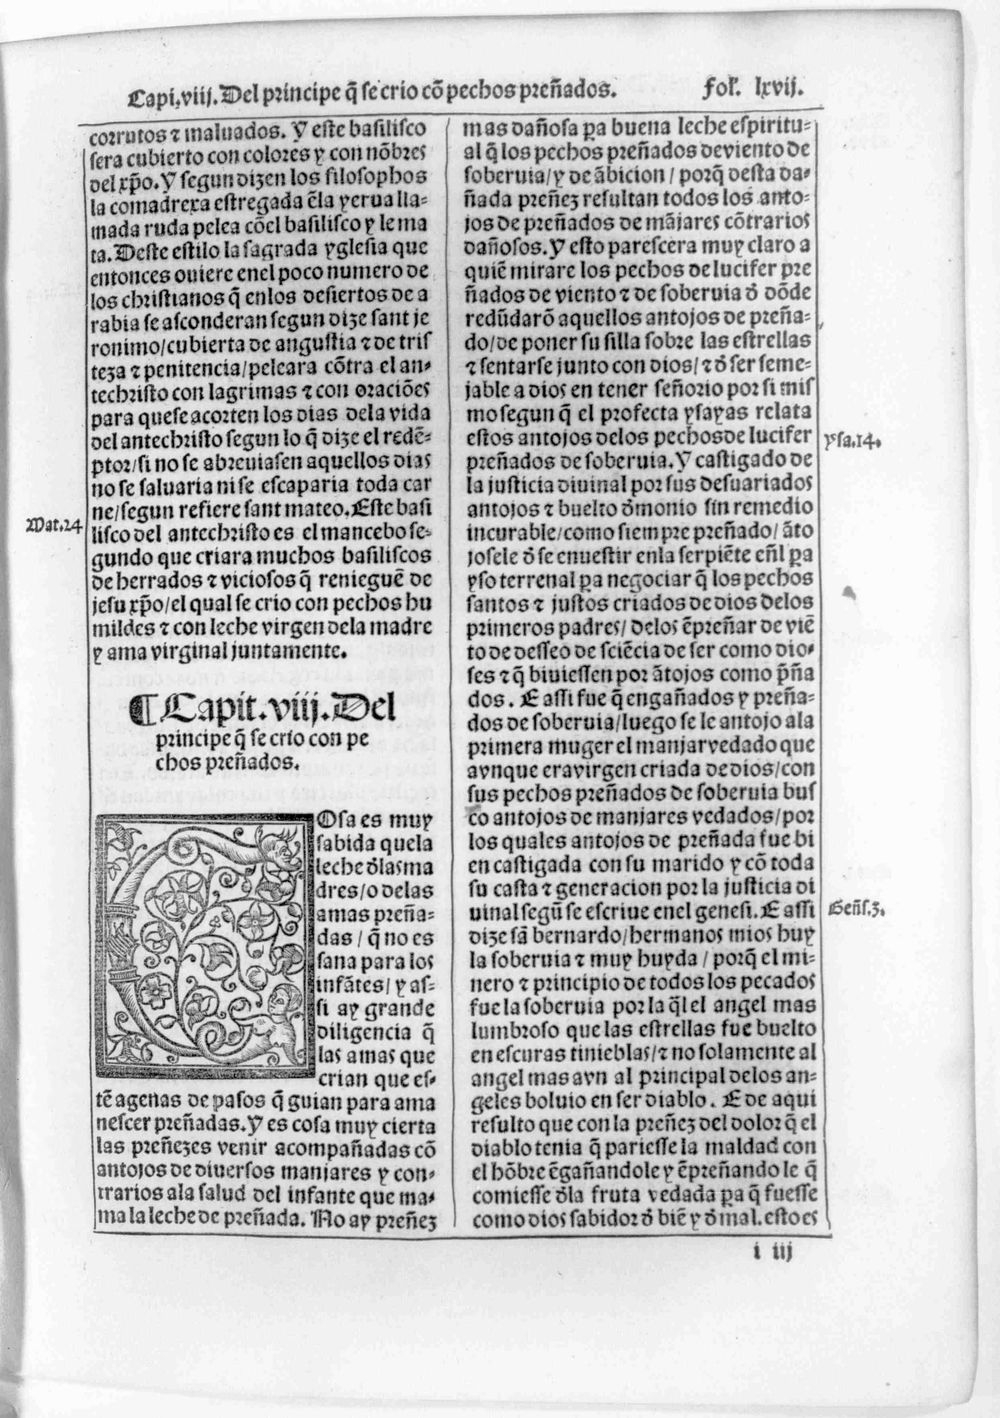 Capi.viij.Del principe q̃ se crio cõ pechos preñados.
fol. lxvij.
corrutos ⁊ maluados. Y este basilisco
sera cubierto con colores y con nõbres
del xp̃o.Y segun dizen los filosophos
la comadrexa estregada ẽla yerua lla-
mada ruda pelea cõel basilisco y le ma
ta.Deste estilo la sagrada yglesia que
entonces ouiere enel poco numero de
los christianos q̃ enlos desiertos de a
rabia se asconderan segun dize sant je
ronimo/cubierta de angustia ⁊ de tris
teza ⁊ penitencia/peleara cõtra el an-
techristo con lagrimas ⁊ con oraciões
para quese acorten los dias dela vida
del antechristo segun lo q̃ dize el redẽ-
ptor/si no se abreuiasen aquellos dias
no se saluaria ni se escaparia toda car
ne/segun refiere sant mateo.Este basi
Mat.24
lisco del antechristo es el mancebo se-
gundo que criara muchos basiliscos
de herrados ⁊ viciosos q̃ renieguẽ de
jesu xp̃o/el qual se crio con pechos hu
mildes ⁊ con leche virgen dela madre
y ama virginal juntamente.
¶Capit.viij.Del
principe q̃ se crio con pe
chos preñados.
COsa es muy
sabida quela
leche d̃las ma
dres/o delas
amas preña-
das / q̃ no es
sana para los
infãtes/ y as-
si ay grande
diligencia q̃
las amas que
crian que es-
tẽ agenas de pasos q̃ guian para ama
nescer preñadas.Y es cosa muy cierta
las preñezes venir acompañadas cõ
antojos de diuersos manjares y con-
trarios ala salud del infante que ma-
ma la leche de preñada. No ay preñez
mas dañosa p̱a buena leche espiritu-
al q̃ los pechos preñados de viento de
soberuia/y de ãbicion / porq̃ desta da-
ñada preñez resultan todos los anto-
jos de preñados de mãjares cõtrarios
dañosos.Y esto parescera muy claro a
quiẽ mirare los pechos de lucifer pre
ñados de viento ⁊ de soberuia d̃ dõde
redũdarõ aquellos antojos de preña-
do/de poner su silla sobre las estrellas
⁊ sentarse junto con dios/⁊ d̃ ser seme-
jable a dios en tener señorio por si mis
mo segun q̃ el profecta ysayas relata
estos antojos delos pechosde lucifer
ysa.14.
preñados de soberuia.Y castigado de
la justicia diuinal por sus desuariados
antojos ⁊ buelto d̃monio sin remedio
incurable/como siempre preñado/ ãto
josele d̃ se enuestir enla serpiẽte eñl p̱a
yso terrenal p̱a negociar q̃ los pechos
santos ⁊ justos criados de dios delos
primeros padres/ delos ẽpreñar de viẽ
to de desseo de sciẽcia de ser como dio-
ses ⁊ q̃ biuiessen por ãtojos como p̃ña
dos . E assi fue q̃ engañados y preña-
dos de soberuia/luego se le antojo ala
primera muger el manjar vedado que
avnque era virgen criada de dios/con
sus pechos preñados de soberuia bus
co antojos de manjares vedados/por
los quales antojos de preñada fue bi
en castigada con su marido y cõ toda
su casta ⁊ generacion por la justicia di
uinal segũ se escriue enel genesi.E assi
Geñs.3.
dize sã bernardo/hermanos mios huy
la soberuia ⁊ muy huyda / porq̃ el mi-
nero ⁊ principio de todos los pecados
fue la soberuia por la q̃l el angel mas
lumbroso que las estrellas fue buelto
en escuras tinieblas/⁊ no solamente al
angel mas avn al principal delos an-
geles boluio en ser diablo . E de aqui
resulto que con la preñez del dolor q̃ el
diablo tenia q̃ pariesse la maldad con
el hõbre ẽgañandole y ẽpreñando le q̃
comiesse d̃la fruta vedada p̱a q̃ fuesse
como dios sabidor d̃ biẽ y d̃ mal.esto es
i iij